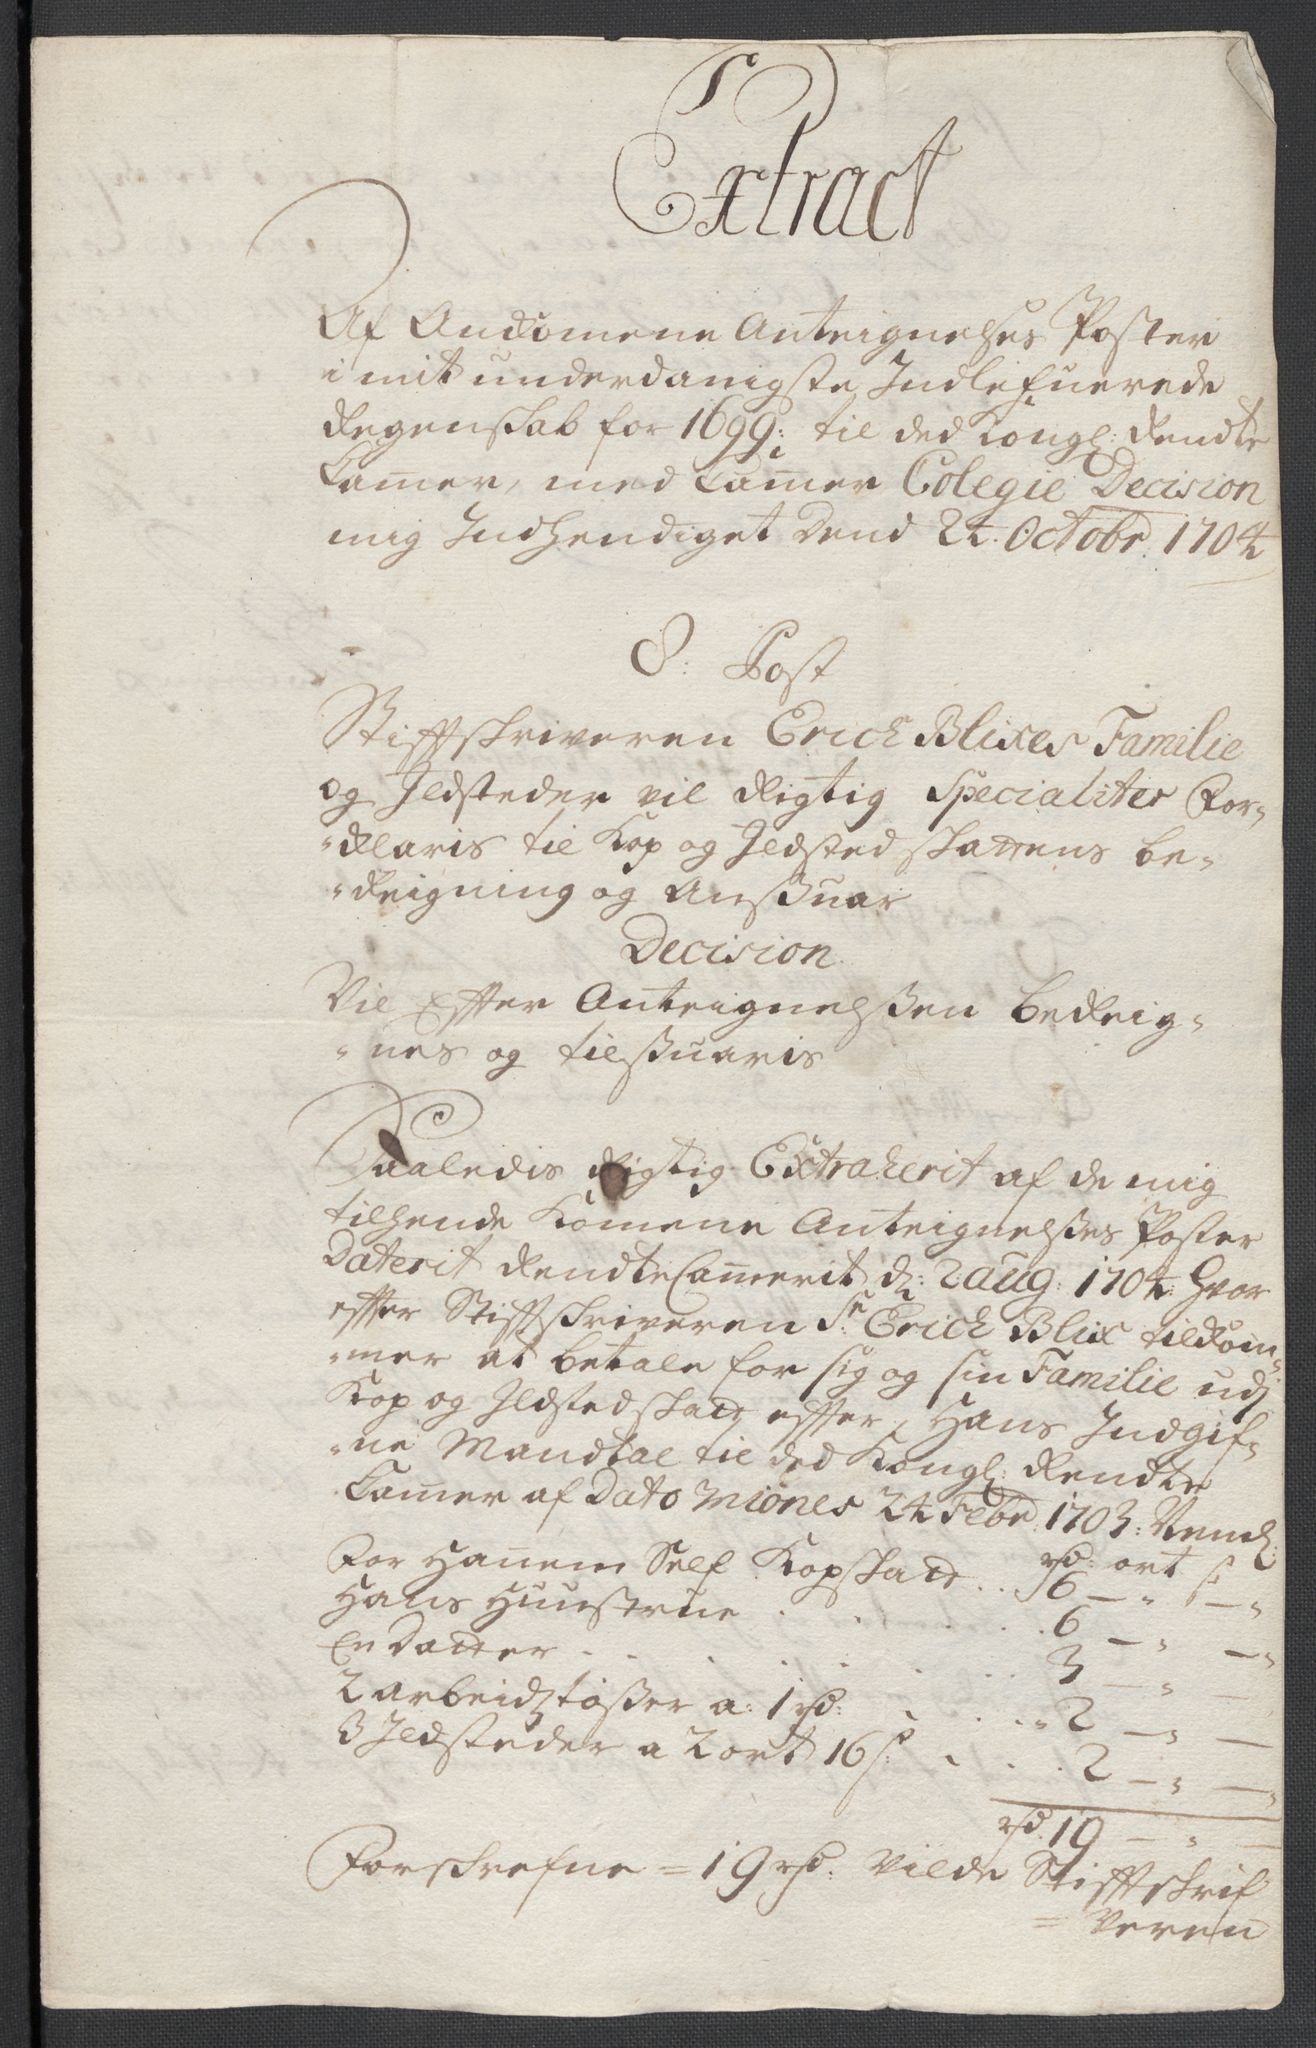 Extract
Af Ankomene Anteignelses Poster
i mit underdanigste Indlefuerede
Regenskab for 1699: til ded Kongl: Rendte
Camer, med Camer Colegie Decision
mig Indhendiget Dend 24. Octobr. 1704
8: Post
Stiftskriveren Erich Blixes Familie
og Ildsteder vil Rigtig Specialiter For-
-klaris til Kop og Ildsted skattens be-
-Reigning og Ansuar
Decision
Vil Effter Anteignelßen beReig-
-nes og tilsuaris
Saaledis Rigtig Extraherit af de mig
tilhende Komene Anteignelßes Poster
Daterit RendteCamerit d: 2 aug: 1704: Hvor
effter Stiftskriveren Sr. Erich Blix tilkom-
-mer at betale for sig og sin Familie udj
Kop og Ildstedskatt effter Hans Indgif-
-ne Mandtal til ded Kongl: Rendte
Camer af Dato Miønes 24 Febr: 1703: Nemlig:
For Hanem Self Kopskatt .. rd: 6 — ort " — s "
Hans Huustrue . . . . . 6 — " — "
En Datter . . . . . . 3 — " —
2 arbeidztøßer a: 1 rd: . . . " 2 — " —
3 Ildsteder a 2 ort 16 s: . . . 2 — " — "
rd. 19 — " —
Forskrefne = 19 rd: vilde Stiftskrif
= veren